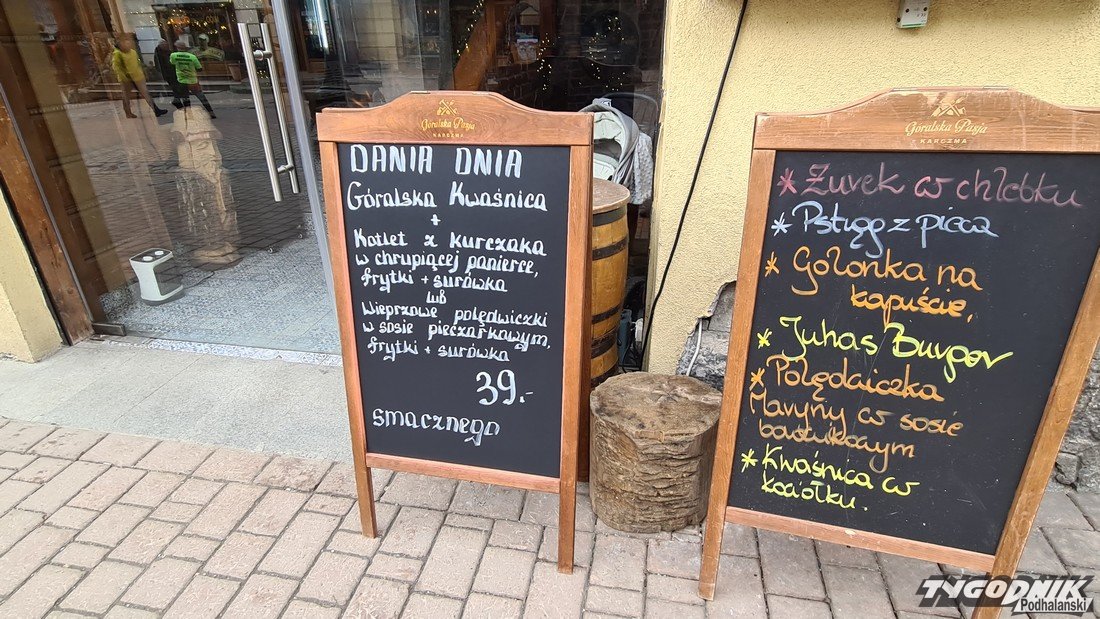 Góralska Pasja
KARCZMA
DANIA DNIA
Góralska Kwaśnica
+
Kotlet z kurczaka
w chrupiącej panierce,
frytki + surówka
lub
Wieprzowe polędwiczki
w sosie pieczarkowym,
frytki + surówka
39.-
smacznego
Góralska Pasja
KARCZMA
* Żurek w chlebku
* Pstrąg z pieca
* Golonka na
kapuście,
* Juhas Burger
* Polędwiczka
Maryny w sosie
borowikowym
* Kwaśnica w
kociołku.
TYGODNIK
Podhalański